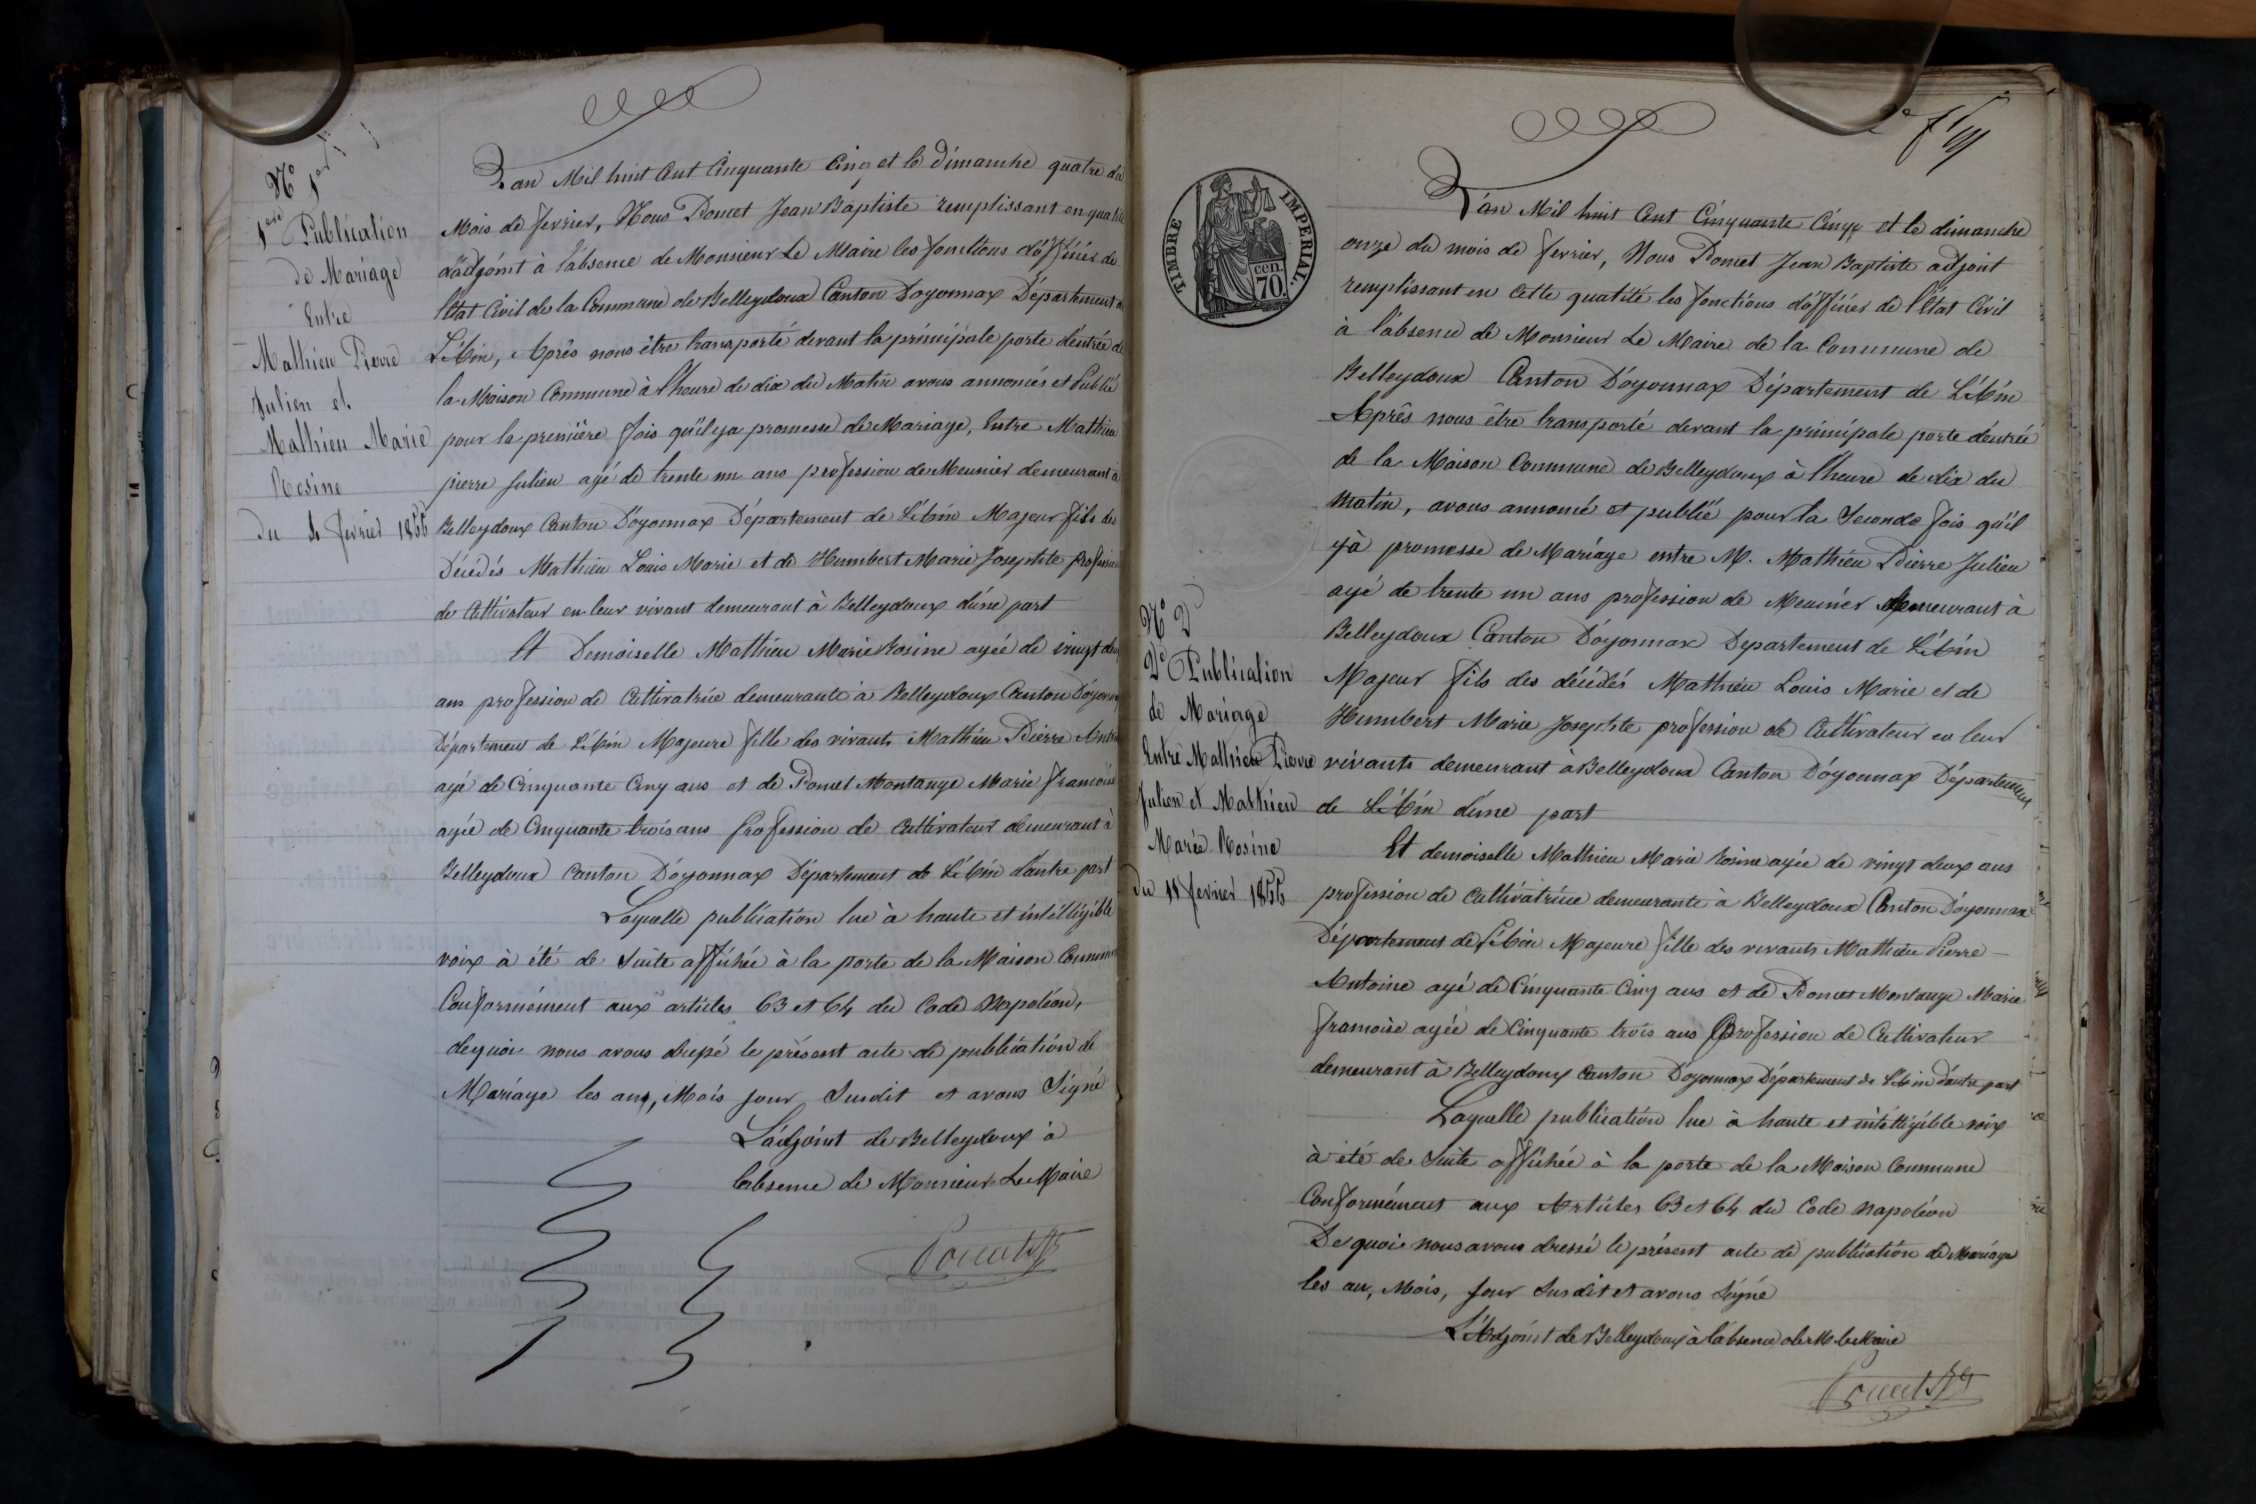 N° 1er
1ere Publication
de Mariage
Entre
Mathieu Pierre
Julien et
Mathieu Marie
Rosine
du 4 fevrier 1855
L'an Mil huit Cent Cinquante Cinq et le dimanche quatre du
Mois de fevrier, Nous Poncet Jean Baptiste remplissant en qualité
d'adjoint à l'absence de Monsieur Le Maire les fonctions d'officier de
l'Etat Civil de la Commune de Belleydoux Canton D'oyonnax Département de
L'Ain, Après nous être transporté devant la principale porte d'entrée de
la Maison Commune à l'heure de dix du Matin avons annoncés et Publié
pour la première fois qu'il y a promesse de Mariage, Entre Mathieu
pierre Julien agé de trente un ans profession de Meunier demeurant à
Belleydoux Canton D'oyonnax Département de L'Ain Majeur fils des
Décédés Mathieu Louis Marie et de Humbert Marie Josephte profession
de Cultivateur en leur vivant demeurant à Belleydoux d'une part
Et Demoiselle Mathieu Marie Rosine agée de vingt deux
ans profession de Cultivatrice demeurante à Belleydoux Canton D'oyonnax
Département de L'Ain Majeure fille des vivants Mathieu Pierre Antoine
agé de Cinquante Cinq ans et de Poncet Montange Marie francoise
agée de Cinquante trois ans profession de Cultivateur demeurant à
Belleydoux Canton D'oyonnax Département de L'Ain d'autre part
Laquelle publication lue à haute et intélligible
voix à été de Suite affichée à la porte de la Maison Commune
Conformément aux articles 63 et 64 du Code Napoléon,
de quoi nous avons dressé le présent acte de publication de
Mariage les an, Mois jour Susdit et avons Signé
L'adjoint de Belleydoux à
l'absence de Monsieur Le Maire
Poncet
TIMBRE IMPERIAL.
cen.
70
N° 2
2e Publication
de Mariage
Entre Mathieu Pierre
Julien et Mathieu
Marie Rosine
du 11 fevrier 1855
L'an Mil huit Cent Cinquante Cinq et le dimanche
onze du mois de fevrier, Nous Poncet Jean Baptiste adjoint
remplissant en cette qualité les fonctions d'officier de l'Etat Civil
à l'absence de Monsieur Le Maire de la Commune de
Belleydoux Canton D'oyonnax Département de L'Ain
Après nous être transporté devant la principale porte d'entrée
de la Maison Commune de Belleydoux à l'heure de dix du
matin, avons annoncé et publié pour la Seconde fois qu'il
y à promesse de Mariage entre M. Mathieu Pierre Julien
agé de trente un ans profession de Meunier demeurant à
Belleydoux Canton D'oyonnax Departement de L'Ain
Majeur fils des décédés Mathieu Louis Marie et de
Humbert Marie Josephte profession de Cultivateur en leur
vivants demeurant a Belleydoux Canton D'oyonnax Département
de L'Ain d'une part
Et demoiselle Mathieu Marie Rosine agée de vingt deux ans
profession de Cultivatrice demeurante à Belleydoux Canton D'oyonnax
Département de L'Ain Majeure fille des vivants Mathieu Pierre
Antoine agé de Cinquante Cinq ans et de Poncet Montange Marie
francoise agée de Cinquante trois ans profession de Cultivateur
demeurant à Belleydoux Canton D'oyonnax Département de L'Ain d'autre part
Laquelle publication lue à haute et intélligible voix
à été de Suite affichée à la porte de la Maison Commune
Conformément aux Articles 63 et 64 du Code Napoléon
De quoi nous avons dressé le présent acte de publication de Mariage
les an, Mois, Jour Susdit et avons Signé
L'Adjoint de Belleydoux à l'absence de M. le Maire
Poncet